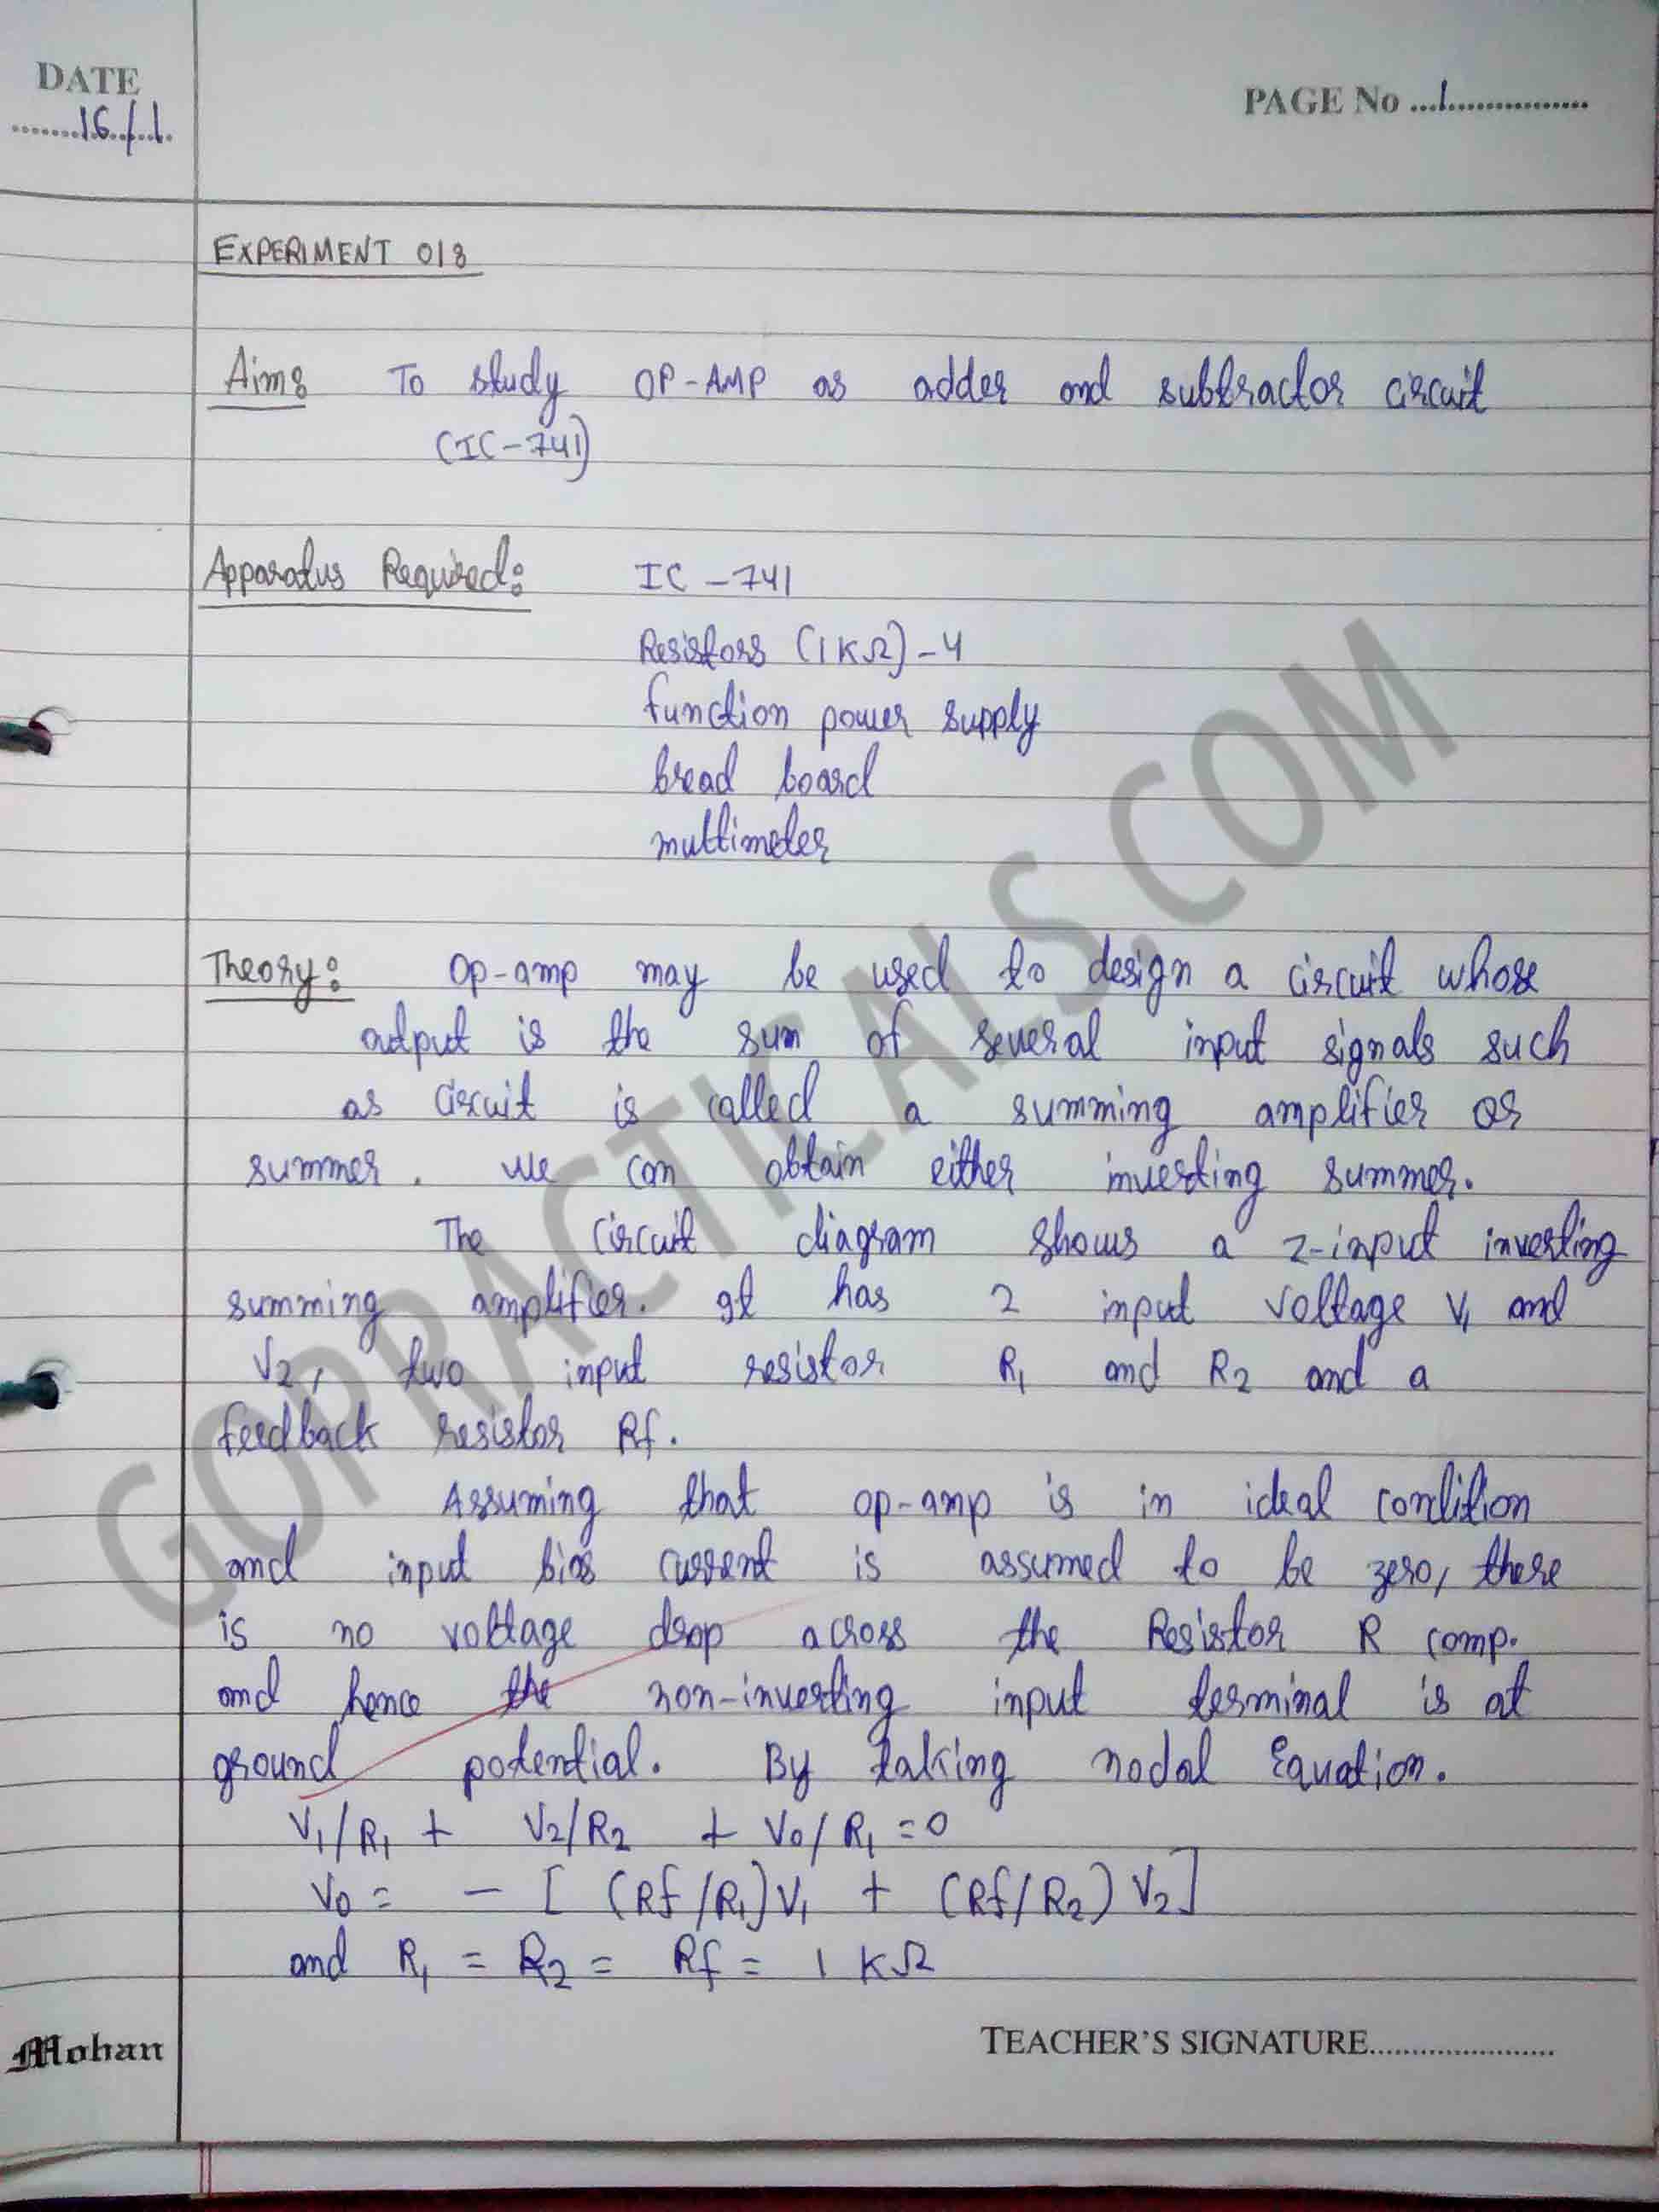 DATE
16/1
PAGE No ...1...
EXPERIMENT 01:
Aim: To study OP-AMP as adder and subtractor circuit
(IC-741)
Apparatus Required: IC-741
Resistors (1KΩ)-4
function power supply
bread board
multimeter
Theory: Op-amp may be used to design a circuit whose
output is the sum of several input signals such
as circuit is called a summing amplifier or
summer. we can obtain either inverting summer.
The circuit diagram shows a 2-input inverting
summing amplifier. It has 2 input voltage V1 and
V2, two input resistor R1 and R2 and a
feedback resistor Rf.
Assuming that op-amp is in ideal condition
and input bias current is assumed to be zero, there
is no voltage drop across the Resistor R comp.
and hence the non-inverting input terminal is at
ground potential. By taking nodal Equation.
V1/R1 + V2/R2 + V0/R1 = 0
V0 = - [ (Rf/R1)V1 + (Rf/R2) V2]
and R1 = R2 = Rf = 1 KΩ
Mohan
TEACHER'S SIGNATURE.......................
GOPRACTICALS.COM